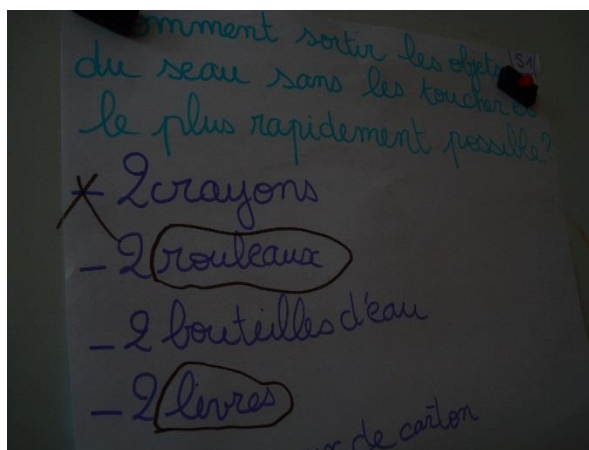 Comment sortir les objets
S1
du seau sans les toucher
le plus rapidement possible?
- 2 crayons
- 2 rouleaux
- 2 bouteilles d'eau
- 2 livres
de carton